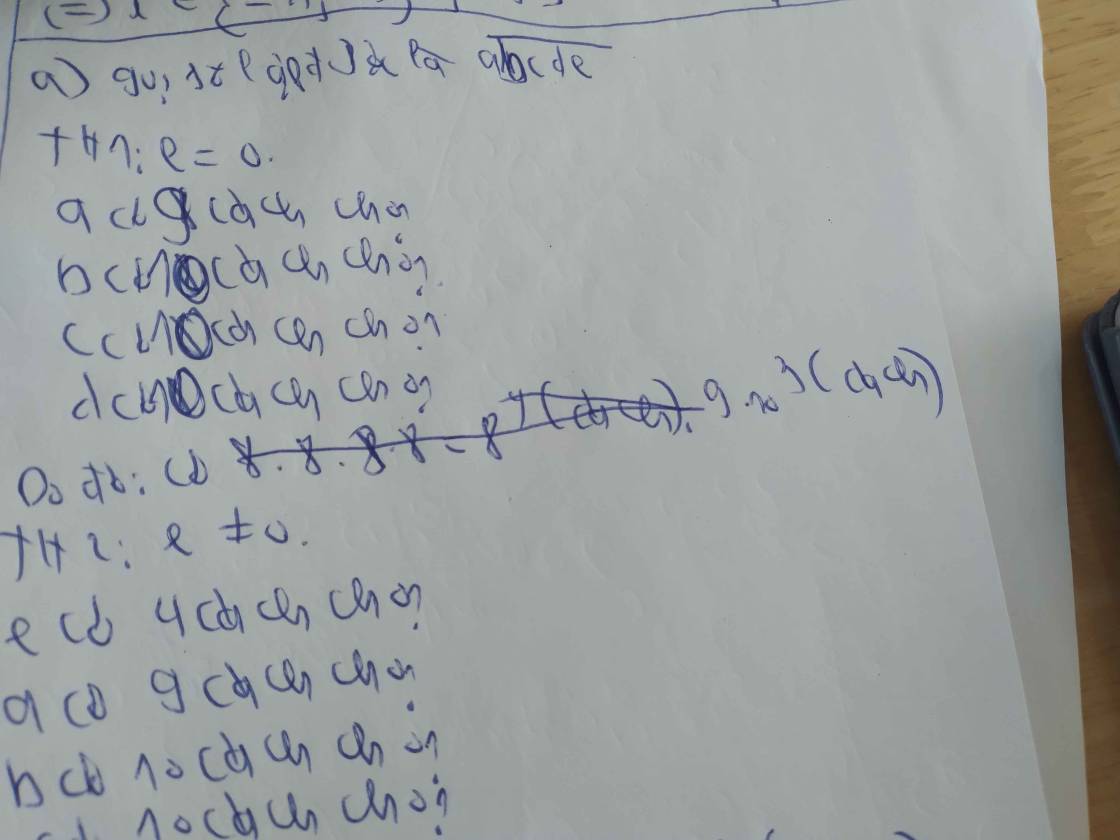 a) gọi số lập được là abcde
TH1: e = 0.
a có 9 cách chọn
b có 10 cách chọn
c có 10 cách chọn
d có 10 cách chọn
Do đó: có 8.8.8.8 = 8⁴ (cách). 9.10³ (cách)
TH2: e ≠ 0.
e có 4 cách chọn
a có 9 cách chọn
b có 10 cách chọn
10 cách chọn